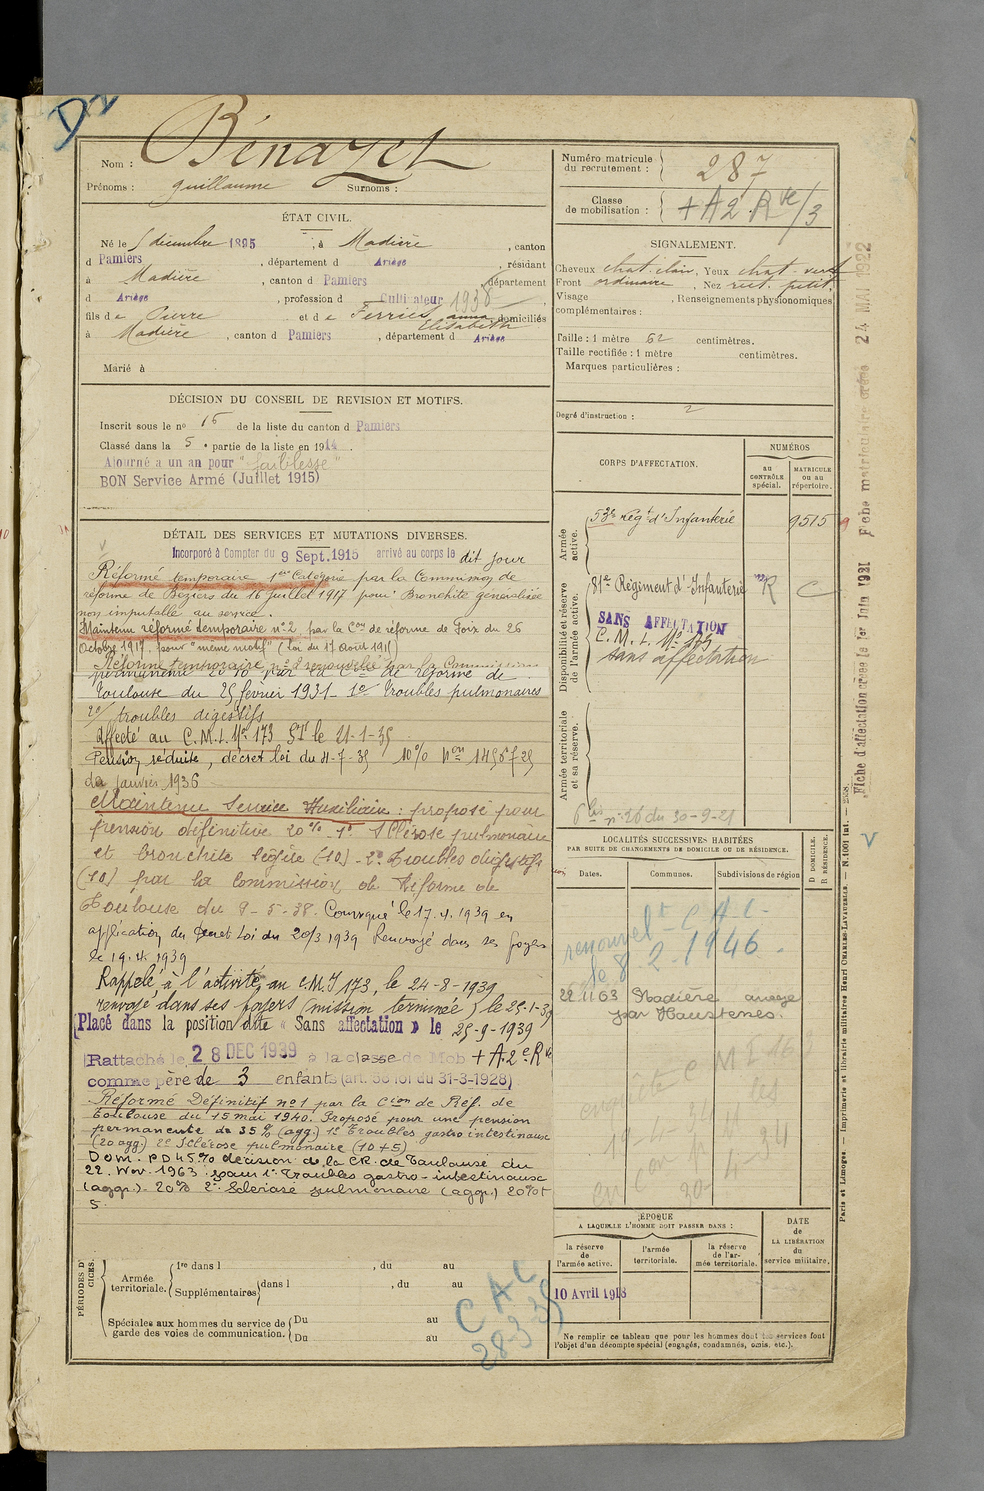 D2
Nom : Bénazet
Prénoms : Guillaume Surnoms :
ÉTAT CIVIL.
Né le 5 décembre 1895, à Madière, canton
d Pamiers, département d Ariège, résidant
à Madière, canton d Pamiers, département
d Ariège, profession d Cultivateur 1938
fils de Pierre et de Ferriès anna Elisabeth domiciliés
à Madière, canton d Pamiers, département d Ariège
Marié à
DÉCISION DU CONSEIL DE REVISION ET MOTIFS.
Inscrit sous le n° 16 de la liste du canton d Pamiers
Classé dans la 5e partie de la liste en 1914.
Ajourné a un an pour "faiblesse"
BON Service Armé (Juillet 1915)
DÉTAIL DES SERVICES ET MUTATIONS DIVERSES.
Incorporé à Compter du 9 Sept. 1915 arrivé au corps le dit jour
Réformé temporaire 1ère Catégorie par la Commission de
réforme de Béziers du 16 juillet 1917 pour Bronchite généralisée
non imputable au service.
Maintenu réformé temporaire n° 2 par la Con de réforme de Foix du 26
Octobre 1917. pour "même motif" (loi du 17 Août 1915)
Réforme temporaire n° 2 renouvelée par la Commission
permanente 20 % par la Con de réforme de
Toulouse du 25 février 1931 1°/ Troubles pulmonaires
2°/ troubles digestifs
Affecté au C.M.I. N° 173 St le 21-1-35
Pension réduite, décret loi du 4-7-35 10%
de Janvier 1936
Maintenu Service Auxiliaire : proposé pour
pension définitive 20% 1° Sclérose pulmonaire
et bronchite légère (10) - 2° Troubles digestifs
(10) par la Commission de Réforme de
Toulouse du 9-5-38. Convoqué le 17.4.1939 en
application du Décret Loi du 20/3 1939 Renvoyé dans ses foyers
le 19.4.1939
Rappelé à l'activité au C.M.I 173, le 24-8-1939
renvoyé dans ses foyers (mission terminée) le
Placé dans la position dite « Sans affectation » le 25-9-1939
Rattaché le 28 DEC 1939 à la classe de Mob + A.2e Rve
comme père de 3 enfants (art. 58 loi du 31-3-1928)
Réformé Définitif n° 1 par la Cion de Réf. de
Toulouse du 15 mai 1940. Proposé pour une pension
permanente de 35% (agg.) 1° Troubles gastro intestinaux
(20 agg.) 2° Sclérose pulmonaire (10+5)
Dom. PD 45% décision de la CR. de Toulouse du
22. Nov. 1963 : pour 1° Troubles gastro-intestinaux
(aggr.) 20% 2° Sclérose pulmonaire (aggr.) 20% +
5.
PÉRIODES D'
CICES.
Armée territoriale. 1re dans l , du au
Supplémentaires dans l , du au
Spéciales aux hommes du service de garde des voies de communication. Du au
Du au
CAC
28-3-39
Numéro matricule du recrutement : 287
Classe de mobilisation : + A2 Rve/3
SIGNALEMENT.
Cheveux chat. clair, Yeux chat. vert
Front ordinaire, Nez rect. petit.
Visage , Renseignements physionomiques
complémentaires :
Taille : 1 mètre 62 centimètres.
Taille rectifiée : 1 mètre centimètres.
Marques particulières :
Degré d'instruction : 2
CORPS D'AFFECTATION.
NUMÉROS
au CONTRÔLE spécial.
MATRICULE ou au répertoire.
Armée active.
53e Régt d'Infanterie 9515
Disponibilité et réserve de l'armée active.
81e Régiment d'Infanterie R C
SANS AFFECTATION
C.M.I. N° 173
sans affectation
Armée territoriale et sa réserve.
n° 26 du 30-9-21
LOCALITÉS SUCCESSIVES HABITÉES
PAR SUITE DE CHANGEMENTS DE DOMICILE OU DE RÉSIDENCE.
Dates. Communes. Subdivisions de région
D DOMICILE.
R RÉSIDENCE.
renouvelt CAC-
le 8.2.1946.
22.11.63 Madière
enquête C M I
ÉPOQUE
A LAQUELLE L'HOMME DOIT PASSER DANS :
la réserve de l'armée active.
l'armée territoriale.
la réserve de l'armée territoriale.
DATE de LA LIBÉRATION du service militaire.
10 Avril 1918
Ne remplir ce tableau que pour les hommes dont les services font
l'objet d'un décompte spécial (engagés, condamnés, omis, etc.).
Fiche d'affectation créée le 1er Juin 1931 Fiche matriculaire créée 24 MAI 1922
Paris et Limoges. — Imprimerie et librairie militaires Henri CHARLES-LAVAUZELLE. — N. 1001 Int.